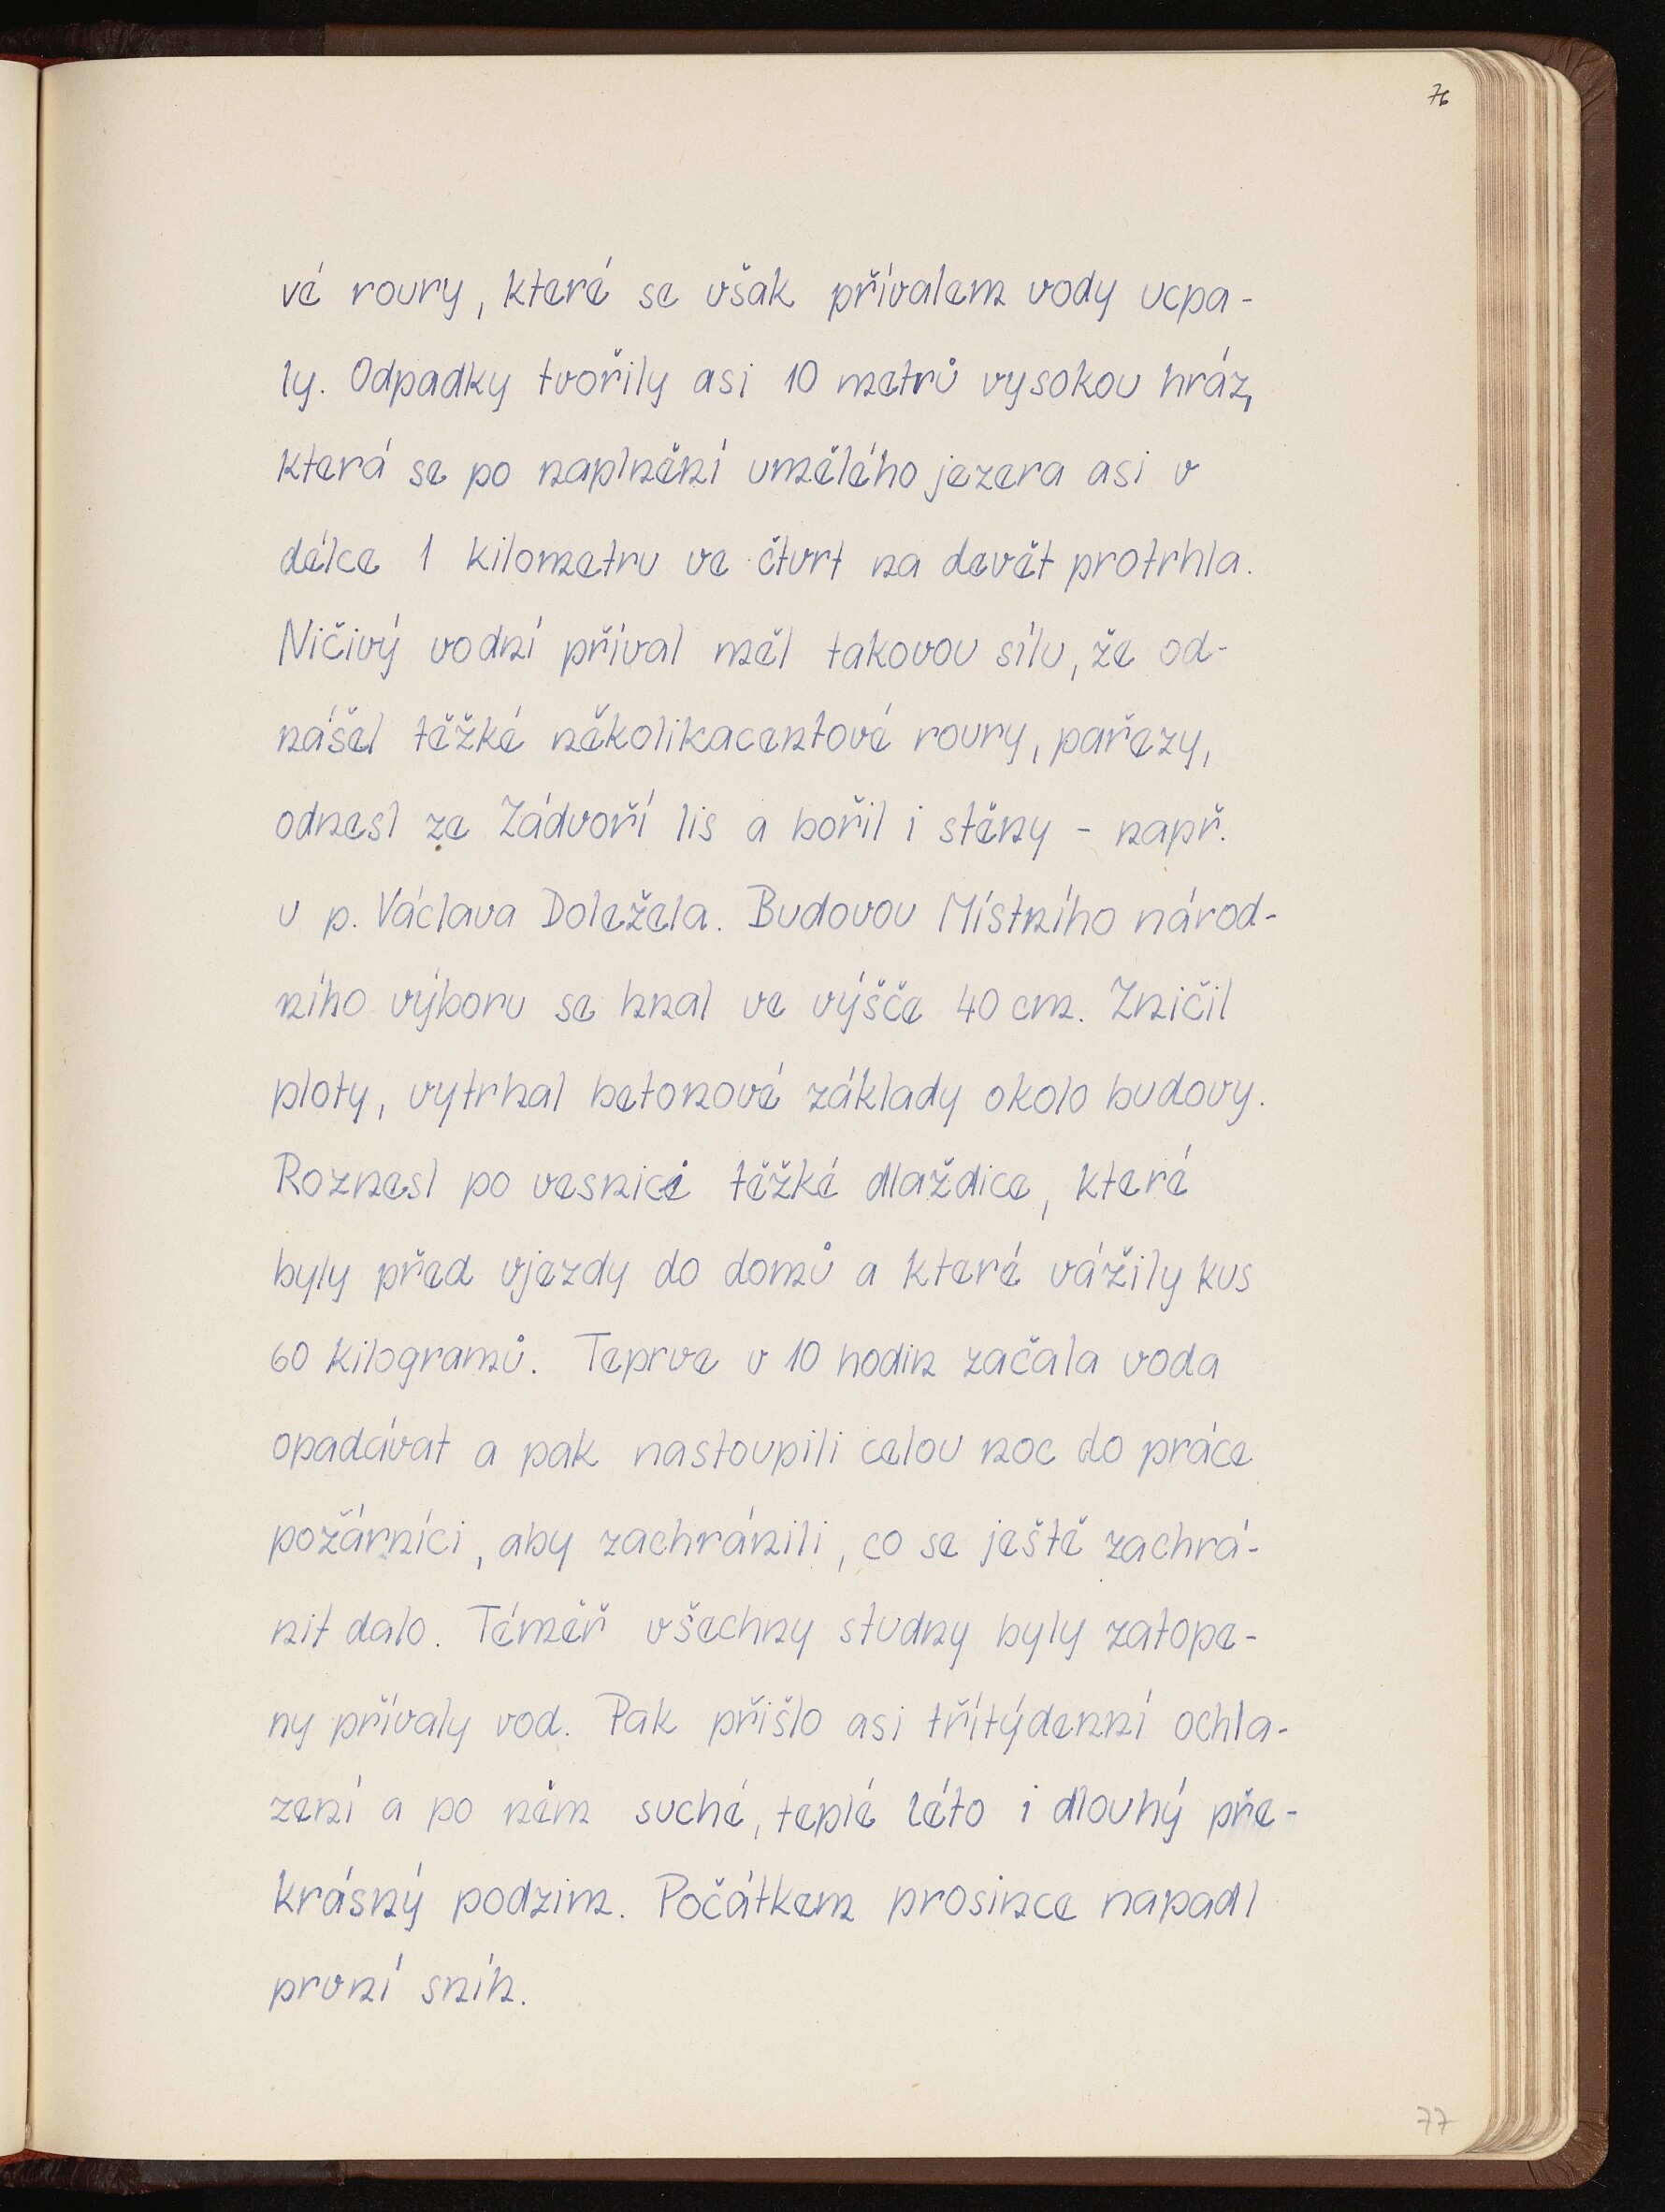 76
vé roury, které se však přívalem vody ucpa-
ly. Odpadky tvořily asi 10 metrů vysokou hráz,
která se po naplnění umělého jezera asi v
délce 1 kilometru ve čtvrt na devět protrhla.
Ničivý vodní příval měl takovou sílu, že od-
nášel těžké několikacentové roury, pařezy,
odnesl ze Zádvoří lis a bořil i stěny - např.
u p. Václava Doležela. Budovou Místního národ-
ního výboru se hnal ve výšče 40 cm. Zničil
ploty, vytrhal betonové základy okolo budovy.
Roznesl po vesnici těžké dlaždice, které
byly před vjezdy do domů a které vážily kus
60 kilogramů. Teprve v 10 hodin začala voda
opadávat a pak nastoupili celou noc do práce
požárníci, aby zachránili, co se ještě zachrá-
nit dalo. Téměř všechny studny byly zatope-
ny přívaly vod. Pak přišlo asi třítýdenní ochla-
zení a po něm suché, teplé léto i dlouhý pře-
krásný podzim. Počátkem prosince napadl
první sníh.
77